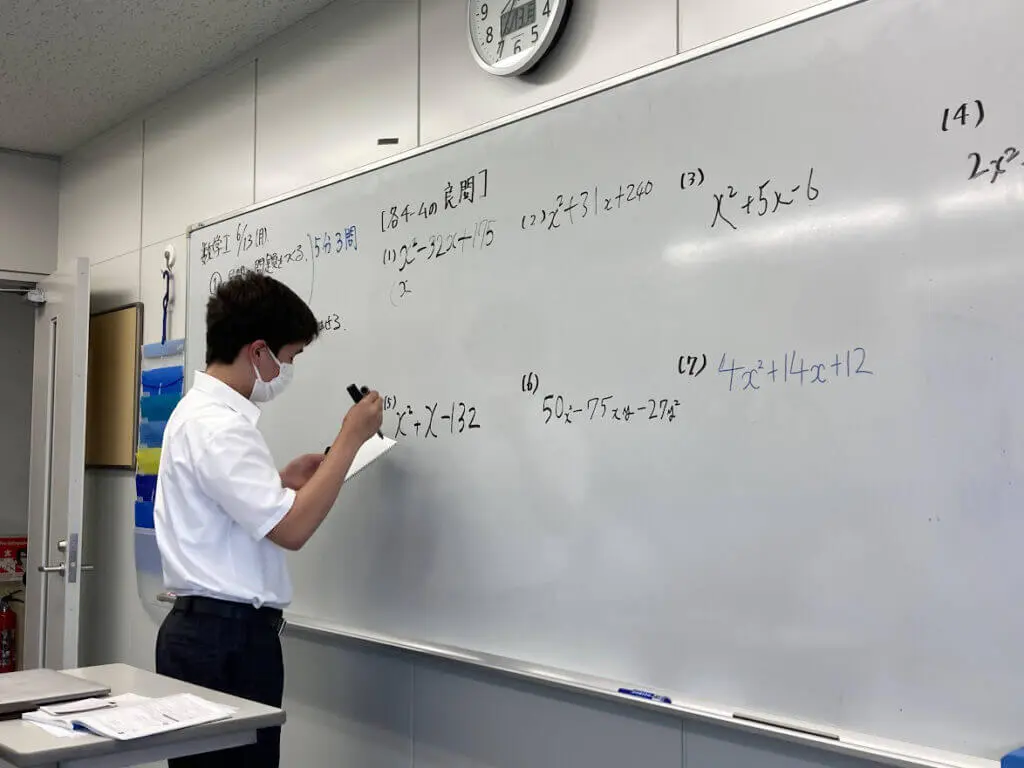 数学I 6/13(月)
5分3問
[各チームの良問]
(1) x²-32x+175
(x
(2) x²+31x+240
(3)
x²+5x-6
(4)
2x²
(5) x²+x-132
(6)
50x²-75xy-27y²
(7) 4x²+14x+12